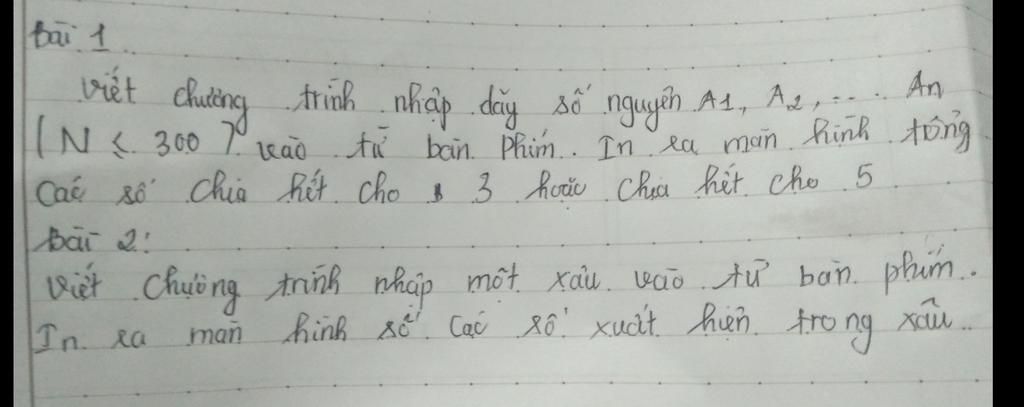 Bài 1
Viết chương trình nhập dãy số nguyên A1, A2, ... An
(N ≤ 300) vào từ bàn phím. In ra màn hình tổng
các số chia hết cho 3 hoặc chia hết cho 5
Bài 2:
Viết chương trình nhập một xâu vào từ bàn phím.
In ra màn hình số các số xuất hiện trong xâu.